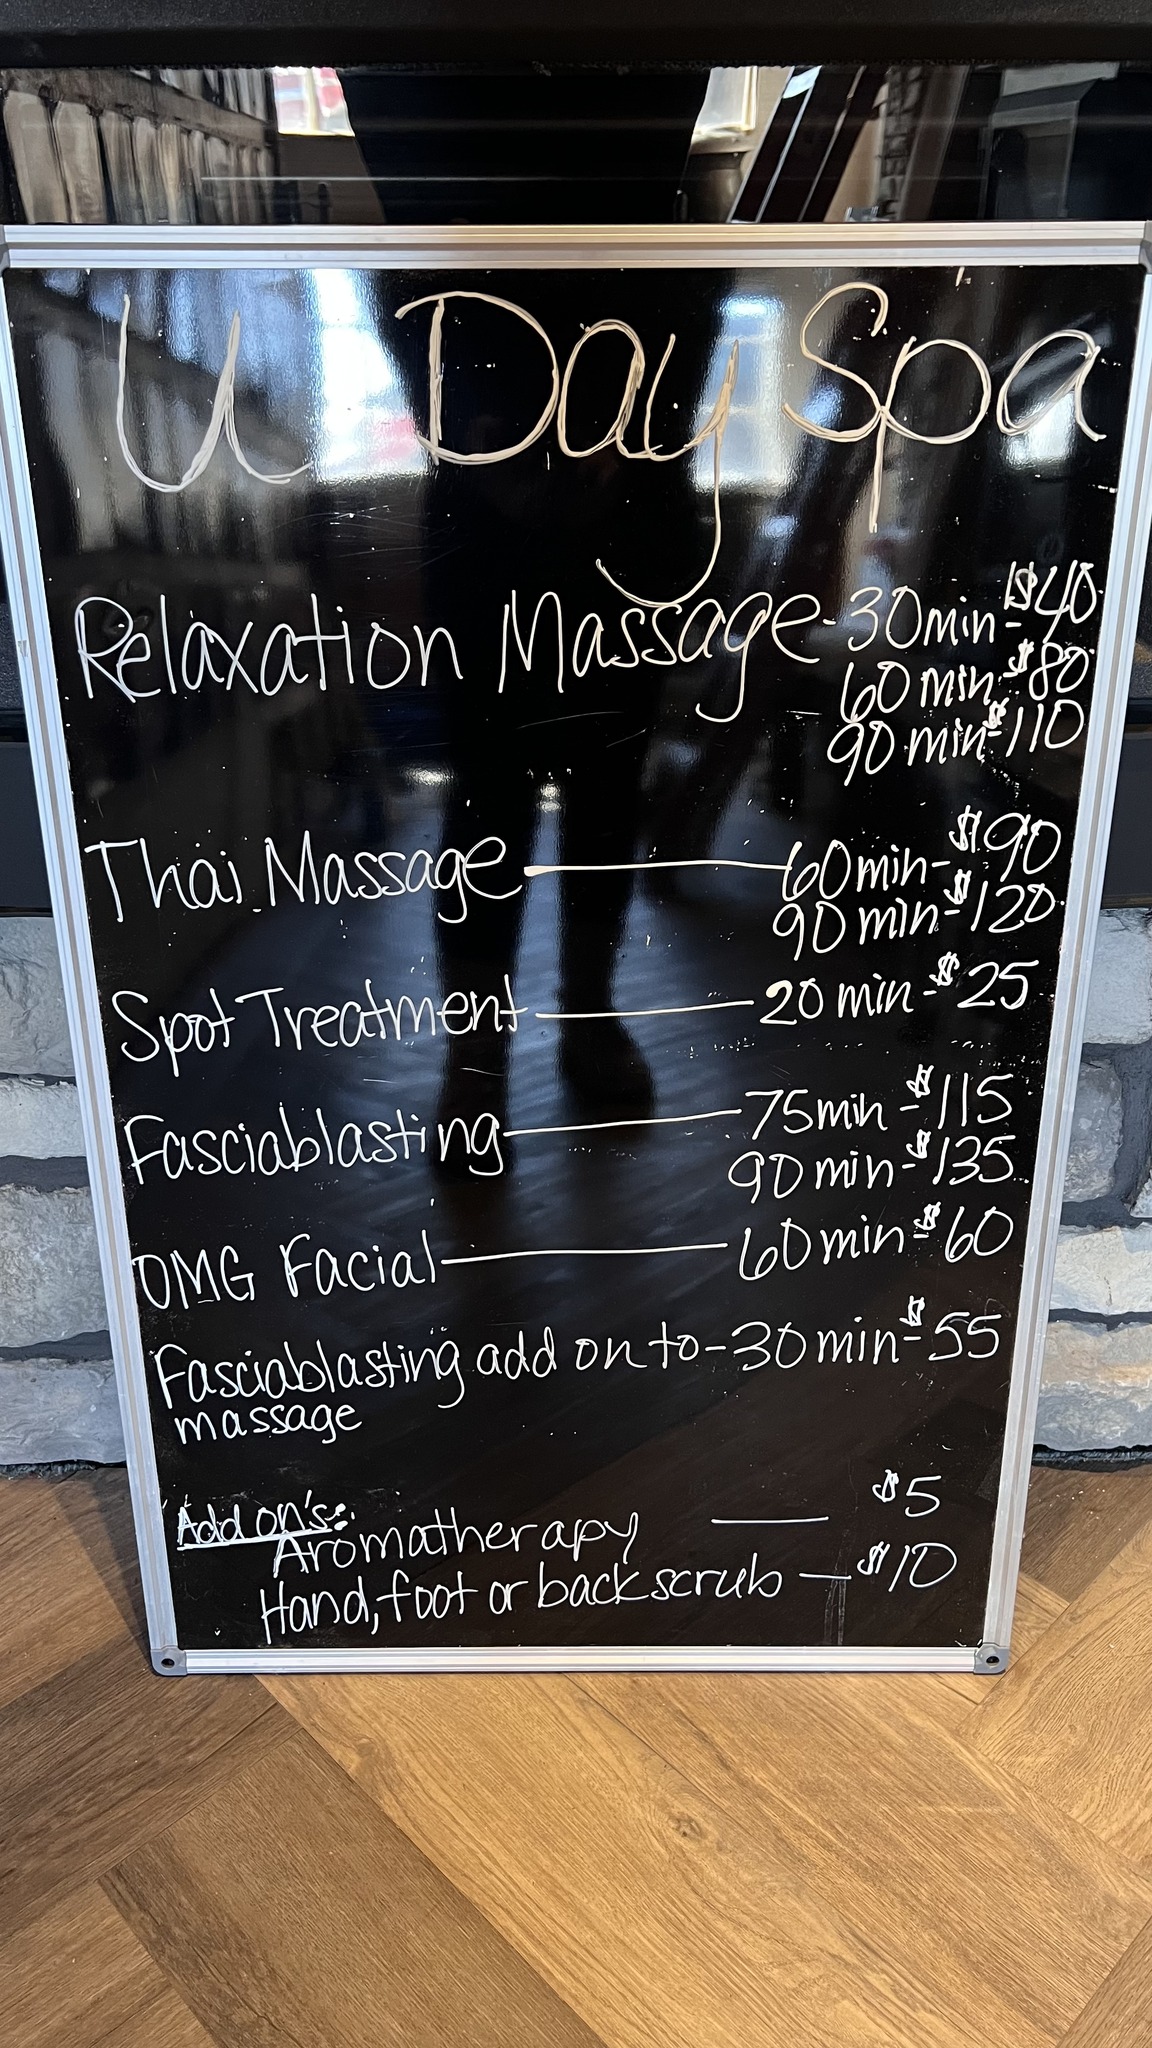 U Day Spa
Relaxation Massage - 30min - $40
60 min - $80
90 min - $110
Thai Massage — 60min - $90
90 min - $120
Spot Treatment — 20 min - $25
Fasciablasting — 75min - $115
90 min - $135
OMG Facial — 60min - $60
Fasciablasting add on to - 30min - $55
massage
Add on's:
Aromatherapy — $5
Hand, foot or back scrub — $10